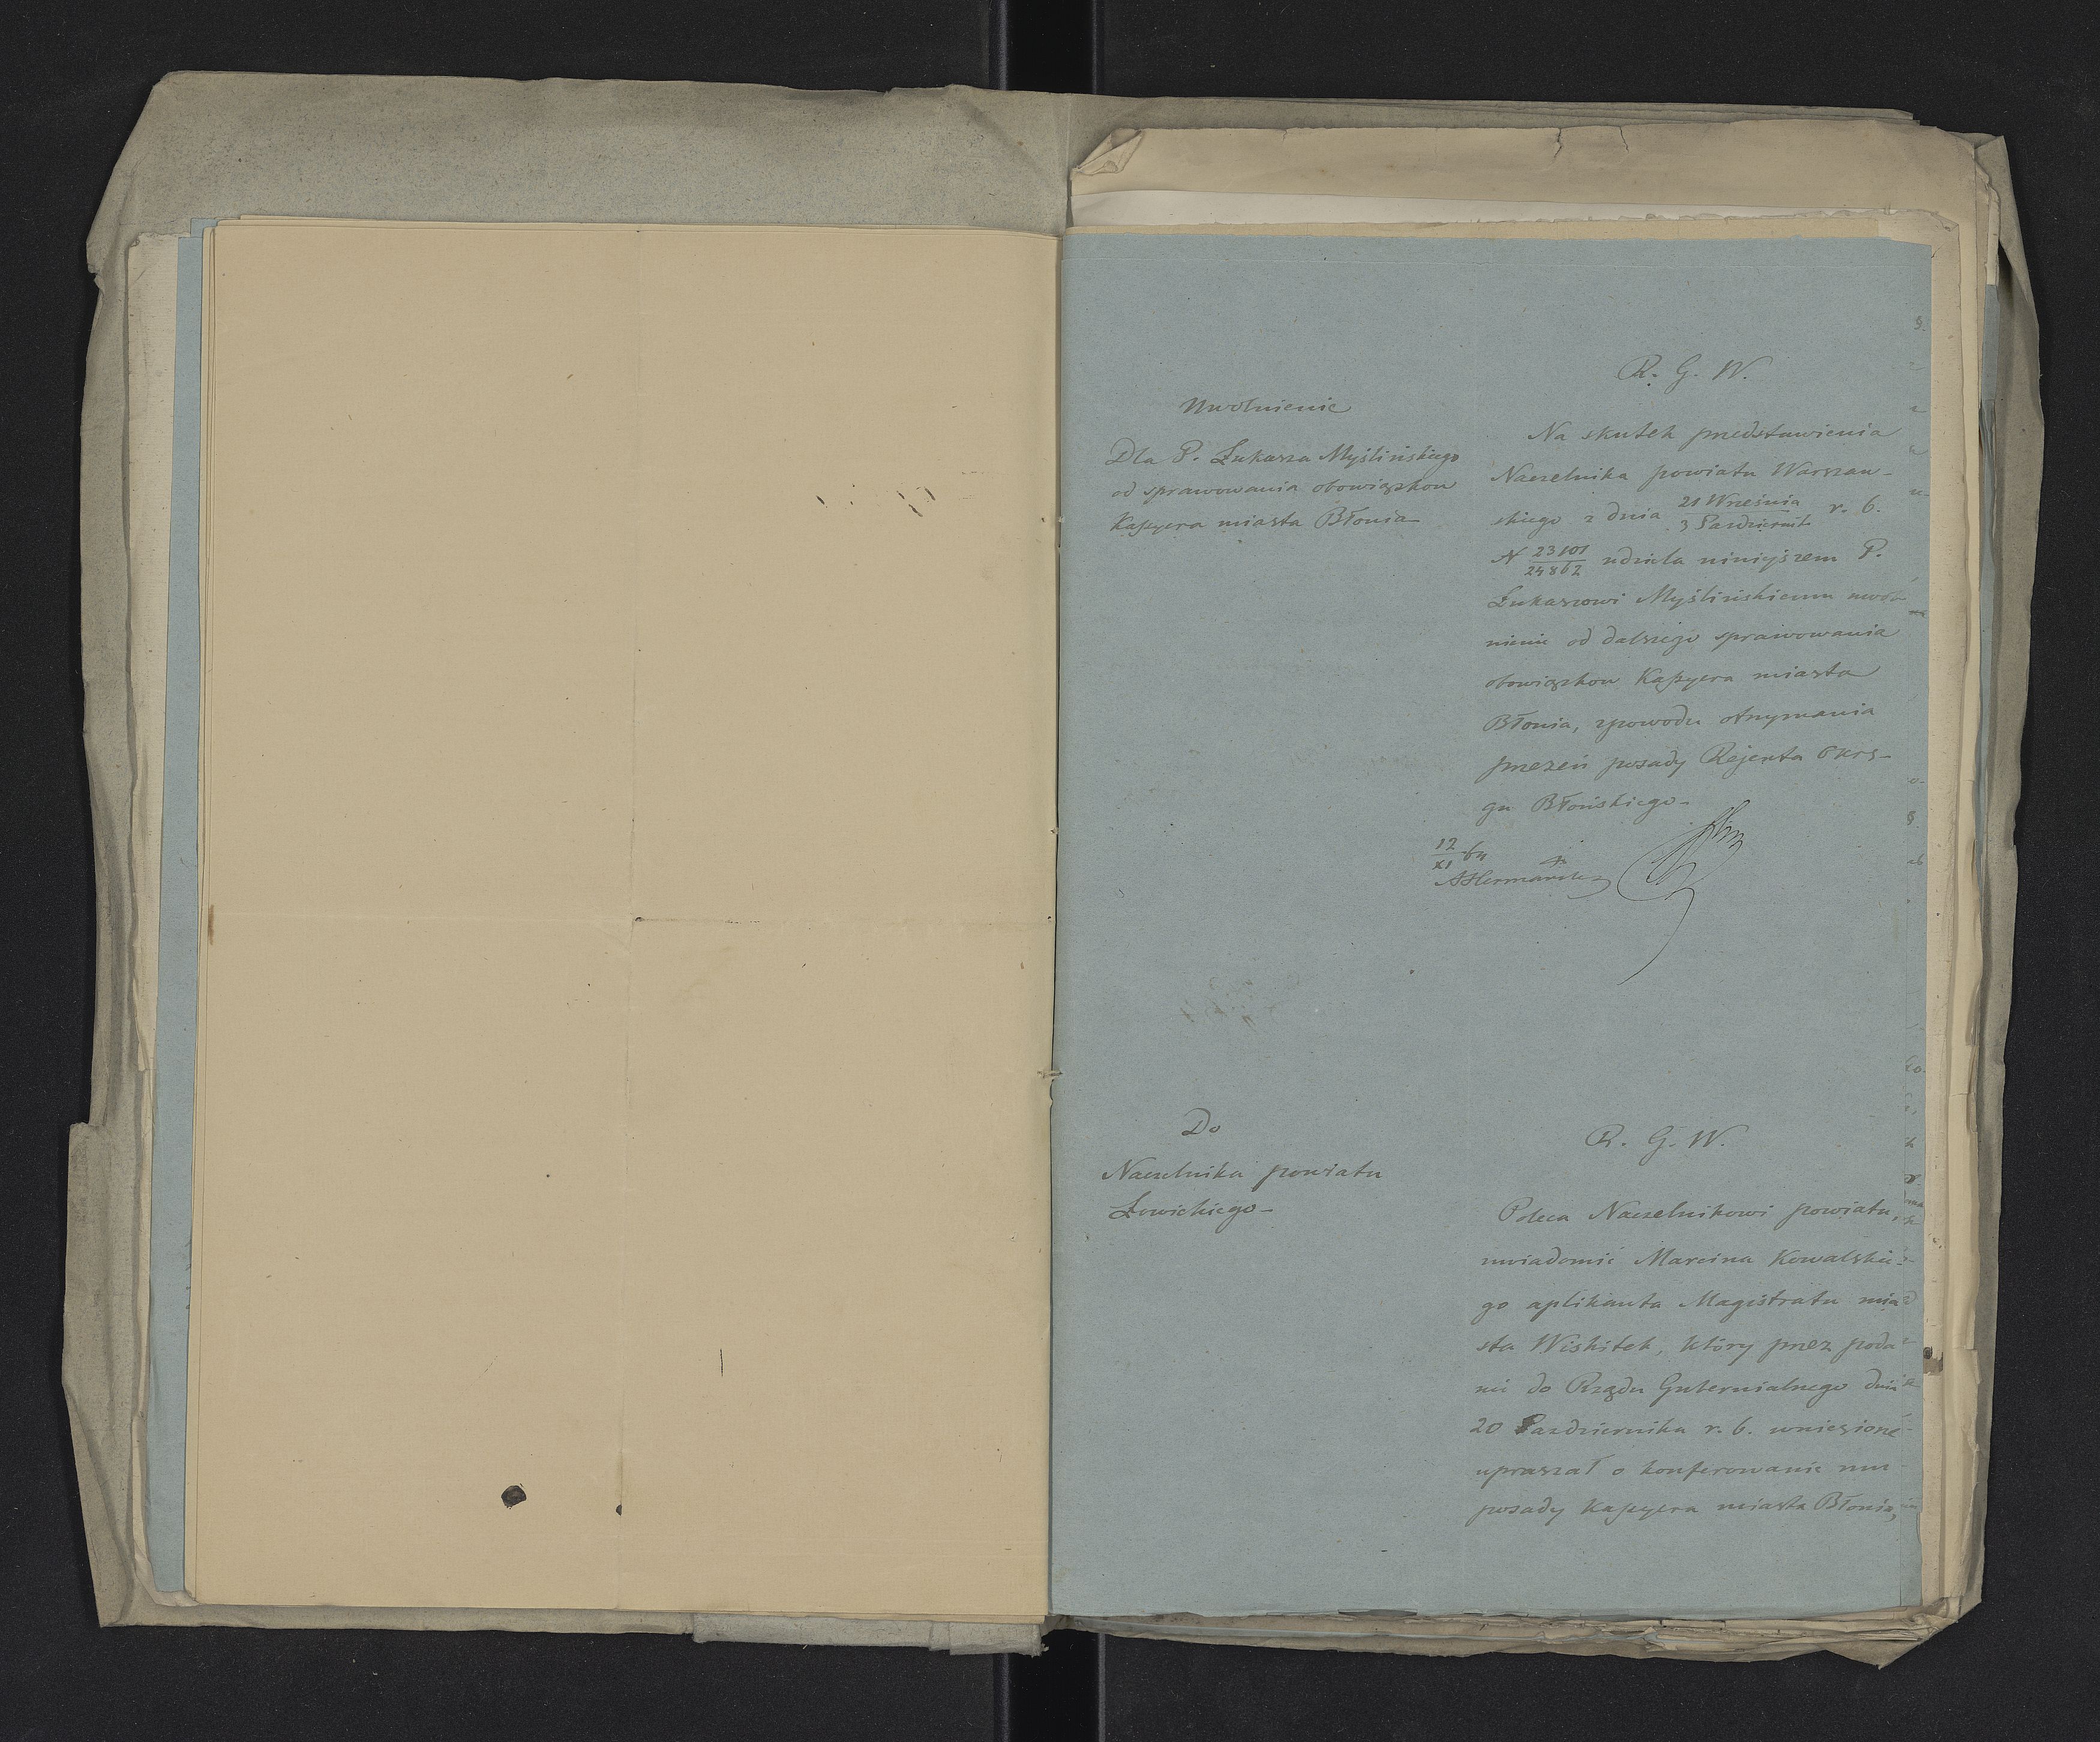 Uwolnienie
Dla P. Łukasza Myślińskiego
od sprawowania obowiązkow
Kaſsyera miasta Błonia
R. G. W.
Na skutek przedstawienia
Naczelnika powiatu Warszaw-
skiego z dnia 21 Września / 3 Październik r. b.
N 23101 / 24862 udziela niniejszem P.
Łukaszowi Myślińskiemu uwol
nienie od dalszego sprawowania
obowiązkow Kaſsyera miasta
Błonia, zpowodu otrzymania
przezeń posady Rejenta Okrę-
gu Błońskiego-
12/XI 64
Do
Naczelnika powiatu
Łowickiego-
R. G. W.
Poleca Naczelnikowi powiatu,
uwiadomić Marcina Kowalskie-
go aplikanta Magistratu mia
sta Wiskitek, który przez poda
nie do Rządu Gubernialnego dnia
20 Października r. b. wniesione
upraszał o konferowanie mu
posady Kaſsyera miasta Błonia,